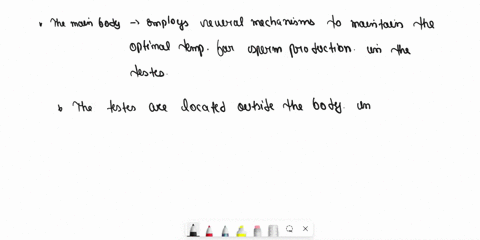 The main body → employs several mechanisms to maintain the
optimal temp. for sperm production. in the
testes.
The testes are located outside the body. in